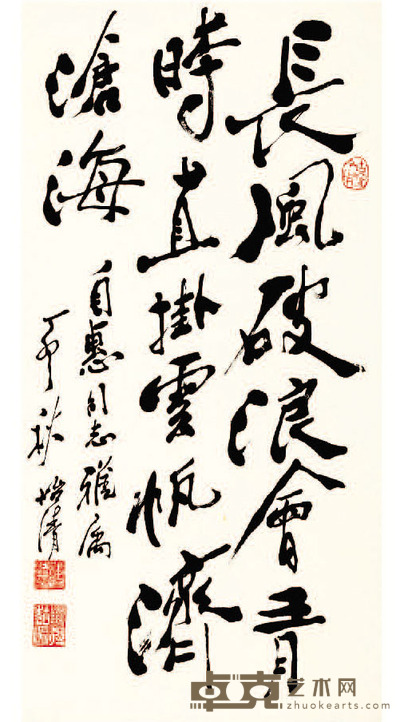 長風破浪會有
時直掛雲帆濟
滄海
自惠同志雅屬
秋
卓克艺术网
zhuokearts.com